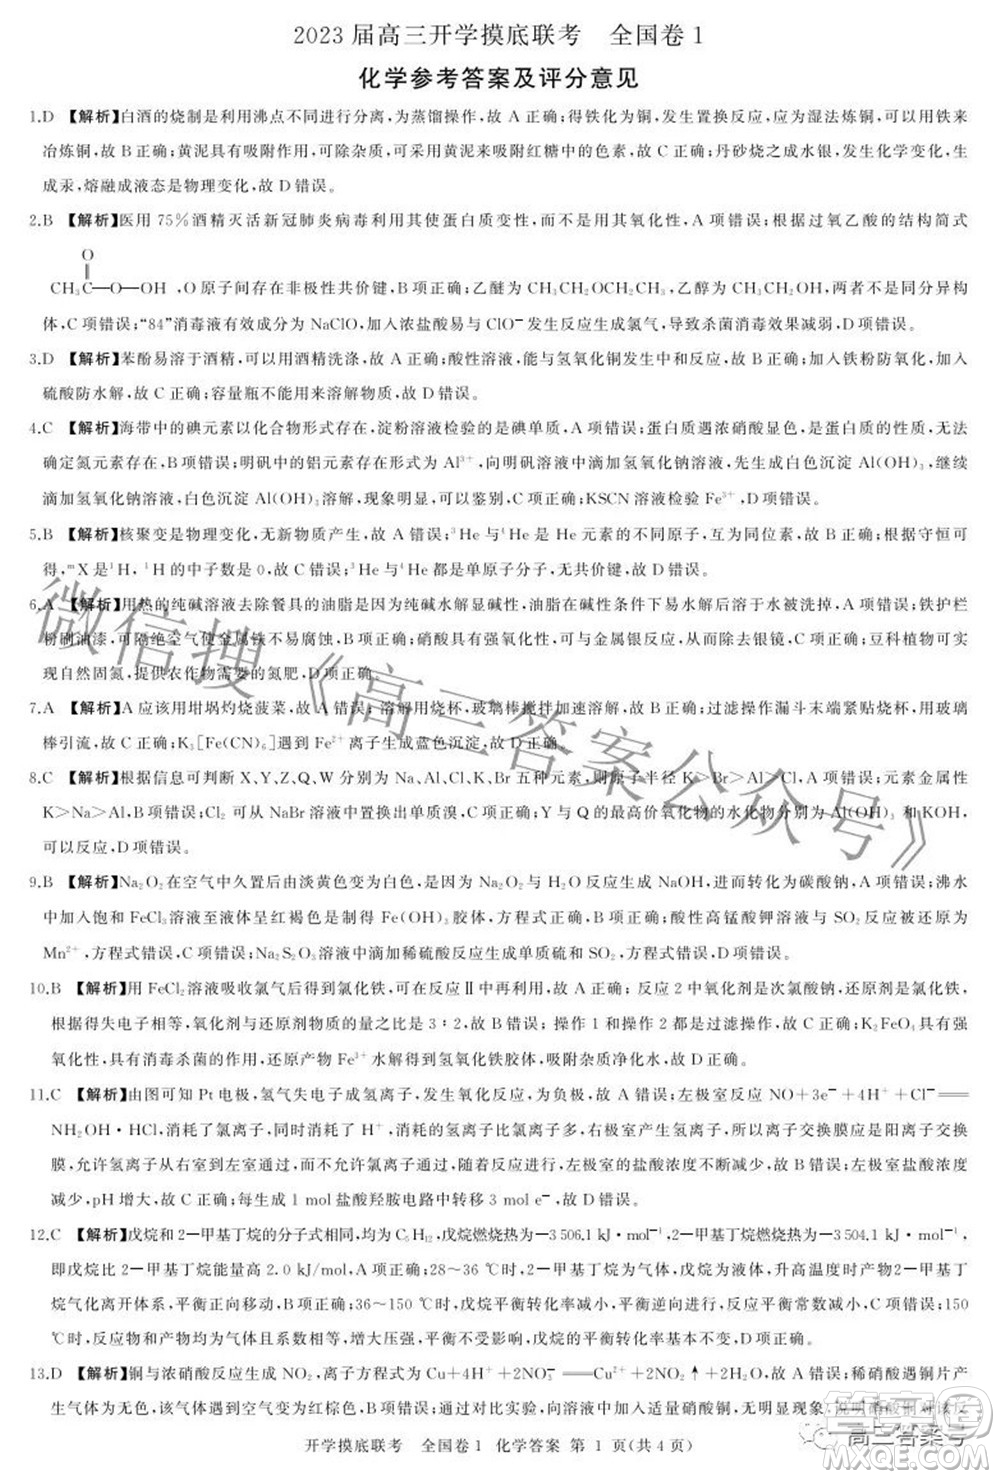 2023 届高三开学摸底联考　全国卷 1
化学参考答案及评分意见
1.D 【解析】白酒的烧制是利用沸点不同进行分离,为蒸馏操作,故 A 正确;得铁化为铜,发生置换反应,应为湿法炼铜,可以用来
冶炼铜,故 B 正确;黄泥具有吸附作用,可除杂质,可以吸附红糖中的色素,故 C 正确;丹砂烧之成水银,发生化学变化,生
成汞,熔融成液态是物理变化,故 D 错误。
2.B 【解析】医用 75%酒精灭活新冠肺炎病毒利用其使蛋白质变性,而不是用其氧化性,A 项错误;根据过氧乙酸的结构简式
O
CH₃C—O—OH ,O 原子间存在非极性共价键,B 项正确;乙醚为 CH₃CH₂OCH₂CH₃,乙醇为 CH₃CH₂OH,两者不是同分异构
体,C 项错误;“84”消毒液有效成分为 NaClO,加浓盐酸易与 ClO⁻发生反应生成氯气,导致杀菌消毒效果减弱,D 项错误。
3.D 【解析】苯酚易溶于酒精,可以用酒精洗涤,故 A 正确;酸性溶液,能与氢氧化铜发生中和反应,故 B 正确;加入铁粉防氧化,加入
硫酸防水解,故 C 正确;容量瓶不能用来溶解物质,故 D 错误。
4.C 【解析】海带中的碘元素以化合物形式存在,淀粉溶液检验的是碘单质,A 项错误;蛋白质遇浓硝酸显色,是蛋白质的性质,无法
确定氮元素存在,B 项错误;明矾中的铝元素存在形式为 Al³⁺,向明矾溶液中滴加氢氧化钠溶液,先生成白色沉淀 Al(OH)₃,继续
滴加氢氧化钠溶液,白色沉淀 Al(OH)₃溶解,现象明显,可以鉴别,C 项正确;KSCN 溶液检验 Fe³⁺,D 项错误。
5.B 【解析】核聚变是物理变化,无新物质产生,故 A 错误;³He 与⁴He 是 He 元素的不同原子,互为同位素,故 B 正确;根据质量守恒可
得,ᵐX 是¹H,¹H 的中子数是 0,故 C 错误;³He 与⁴He 都是单原子分子,无共价键,故 D 错误。
6.A 【解析】用热的纯碱溶液去除餐具的油脂是因为纯碱水解显碱性,油脂在碱性条件下易水解溶于水被洗掉,A 项错误;铁护栏
粉刷油漆,可隔绝空气使金属铁不易腐蚀,B 项正确;硝酸具有强氧化性,可与金属银反应,从而除去银镜,C 项正确;豆科植物可
以自然固氮,提供农作物需要的氮肥,D 项正确。
7.A 【解析】A 应该用坩埚灼烧菠菜,故 A 错误;溶解用烧杯,玻璃棒搅拌加速溶解,故 B 正确;过滤操作漏斗末端紧贴烧杯,用玻璃
棒引流,故 C 正确;K₃[Fe(CN)₆]遇到 Fe²⁺离子生成蓝色沉淀,故 D 正确。
8.C 【解析】根据信息可判断 X、Y、Z、Q、W 分别为 Na、Al、Cl、K、Br 五种元素,则原子半径 K>Br>Al>Cl,A 项错误;元素金属性
K>Na>Al,B 项错误;Cl₂ 可从 NaBr 溶液中置换出单质溴,C 项正确;Y 与 Q 的最高价氧化物的水化物分别为 Al(OH)₃ 和 KOH,
可以反应,D 项错误。
9.B 【解析】Na₂O₂在空气中久置后由淡黄色变为白色,是因为 Na₂O₂与 H₂O 反应生成 NaOH,进而转化为碳酸钠,A 项错误;沸水
中加入饱和 FeCl₃溶液至液体呈红褐色是制备 Fe(OH)₃胶体,方程式正确,B 项正确;酸性高锰酸钾溶液与 SO₂反应被还原为
Mn²⁺,方程式错误,C 项错误;Na₂S₂O₃溶液中滴加稀硫酸反应生成单质硫和 SO₂,方程式错误,D 项错误。
10.B 【解析】用 FeCl₂溶液吸收氯气后得到氯化铁,可在反应Ⅱ中再利用,故 A 正确;反应 2 中氧化剂是次氯酸钠,还原剂是氯化铁,
根据得失电子相等,氧化剂与还原剂物质的量之比是 3∶2,故 B 错误;操作 1 和操作 2 都是过滤操作,故 C 正确;K₂FeO₄具有强
氧化性,具有消毒杀菌的作用,还原产物 Fe³⁺水解得到氢氧化铁胶体,吸附杂质净化水,故 D 正确。
11.C 【解析】由图可知 Pt 电极,氢气失电子生成氢离子,发生氧化反应,为负极,故 A 错误;左极室反应 NO+3e⁻+4H⁺+Cl⁻══
NH₂OH·HCl,消耗了氯离子,同时消耗了 H⁺,消耗的氢离子多,右极室产生氢离子,所以离子交换膜应是阳离子交换
膜,允许氢离子从右室到左室迁移,不允许氯离子迁移,故 B 错误;反应一段时间后,左室的盐酸浓度
减少,pH 增大,故 C 正确;每生成 1 mol 盐酸羟胺电路中转移 3 mol e⁻,故 D 错误。
12.C 【解析】戊烷和 2—甲基丁烷的分子式相同,均为 C₅H₁₂,戊烷燃烧热为—3 506.1 kJ·mol⁻¹,2—甲基丁烷燃烧热为—3 504.1 kJ·mol⁻¹,
即戊烷比 2—甲基丁烷能量高 2.0 kJ/mol,A 正确;28~36 ℃时,戊烷转化为 2—甲基丁烷是放热反应,升高温度时产物 2—甲基丁
烷气化离开体系,平衡正向移动,B 正确;36~150 ℃时,戊烷平衡转化率减小,平衡逆向移动,所以平衡常数减小,C 错误;150
℃时,反应物和产物均为气体且分子数相等,增大压强,平衡不受影响,戊烷的平衡转化率基本不变,D 正确。
13.D 【解析】铜与浓硝酸反应生成 NO₂,离子方程式为 Cu+4H⁺+2NO₃⁻══Cu²⁺+2NO₂↑+2H₂O,故 A 正确;稀硝酸遇铜片产
生气体为无色,该气体遇到空气变为红棕色,则生成气体应为 NO,故 B 正确;实验③中,无明显现象,
开学摸底联考　全国卷 1　化学答案　第 1 页(共 4 页)
微信搜《高三答案公众号》
高三答案号